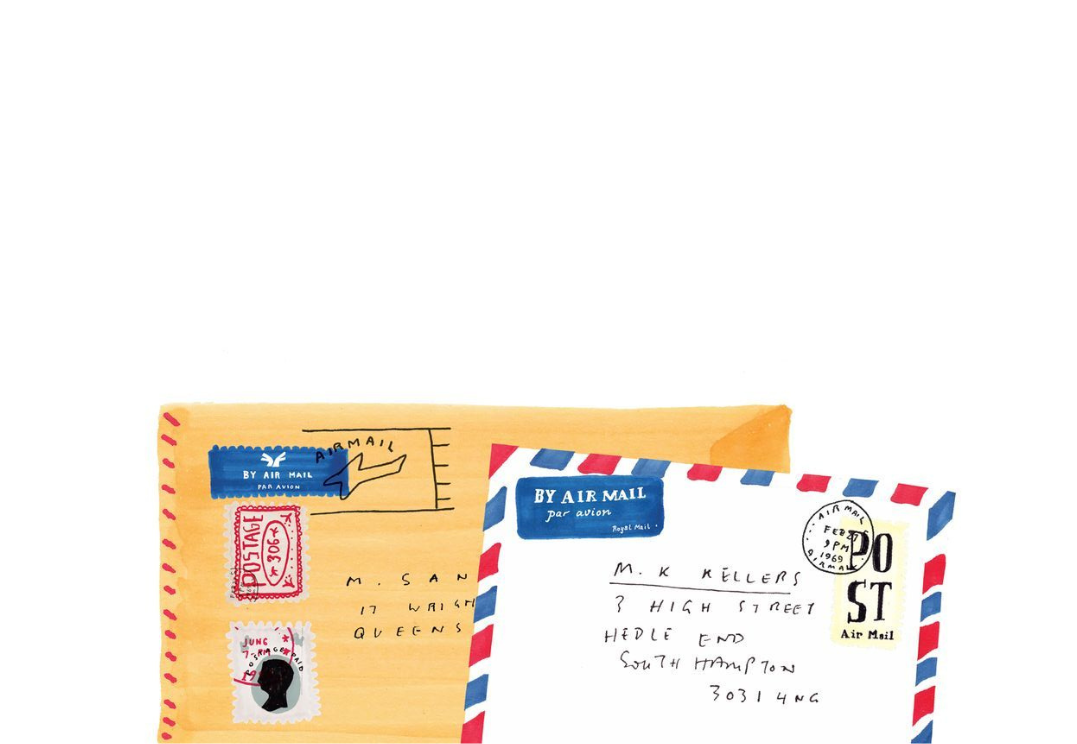 AIRMAIL
BY AIR MAIL
PAR AVION
POSTAGE
306
JUNE
POSTAGE PAID
M. SAN
17 WRIGH
QUEENS
BY AIR MAIL
par avion
Royal Mail
AIR MAIL
FEB 27
9 PM
1969
AIRMAIL
PO
ST
Air Mail
M. K KELLERS
3 HIGH STREET
HEDLE END
SOUTH HAMPTON
3031 4NG